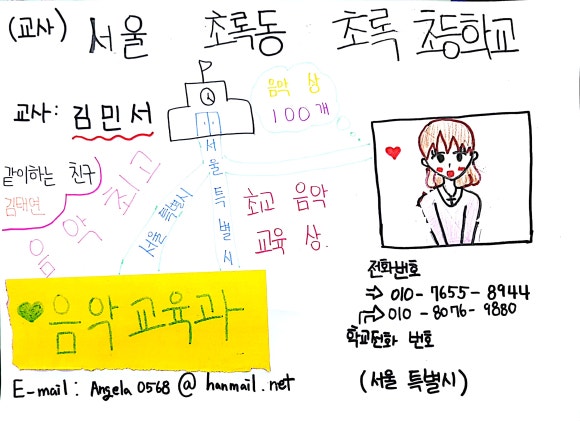 (교사) 서울 초록동 초록 초등학교
음악 상
100개
교사: 김민서
같이하는 친구
김태연
음악 최고
서울 특별시
서울특별시
최고 음악
교육 상.
전화번호
⇒ 010-7655-8944
010-8076-9880
학교전화 번호
♥음악교육과
E-mail: Angela0568@hanmail.net
(서울 특별시)